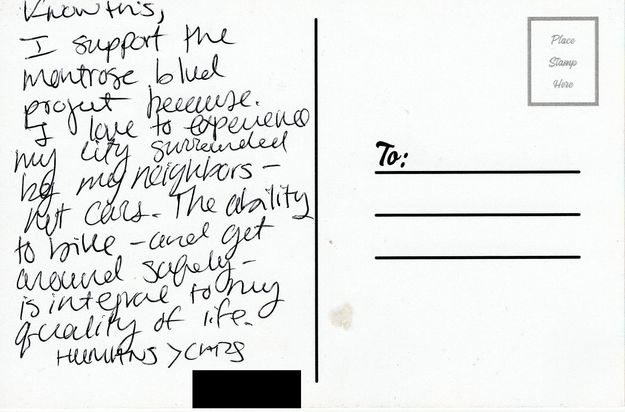 Know this,
I support the
montrose blvd
project because.
I love to experience
my city surrounded
by my neighbors -
not cars. The ability
to bike - and get
around safely -
is integral to my
quality of life.
HUMANS > CARS
Place
Stamp
Here
To: